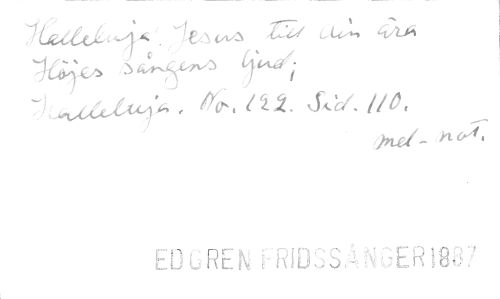 Halleluja! Jesus till din ära
Höjes sångens ljud;
Halleluja. No. 122. Sid. 110.
mel-not.
EDGREN FRIDSSÅNGER 1887